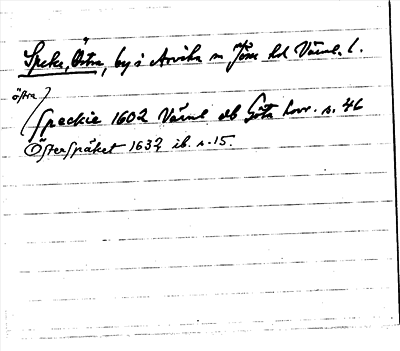 Speke, Östra, by i Arvika sn Jösse hd Värml. l.
östra)
(Speckie 1602 Värml ob Göta hovr. s. 46
Österspäket 1632 ib. s. 15.